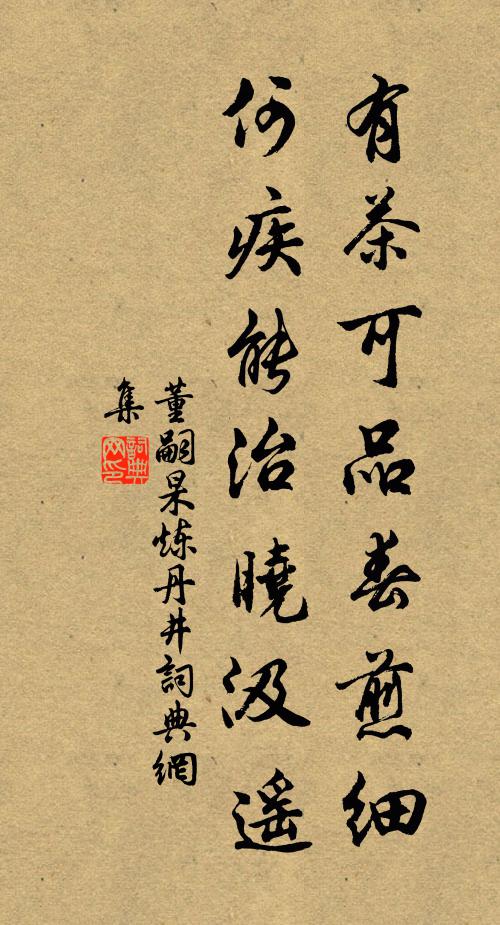 有茶可品春煎細
何疾能治曉汲遥
董嗣杲炼丹井詞典網
集
詞典網印